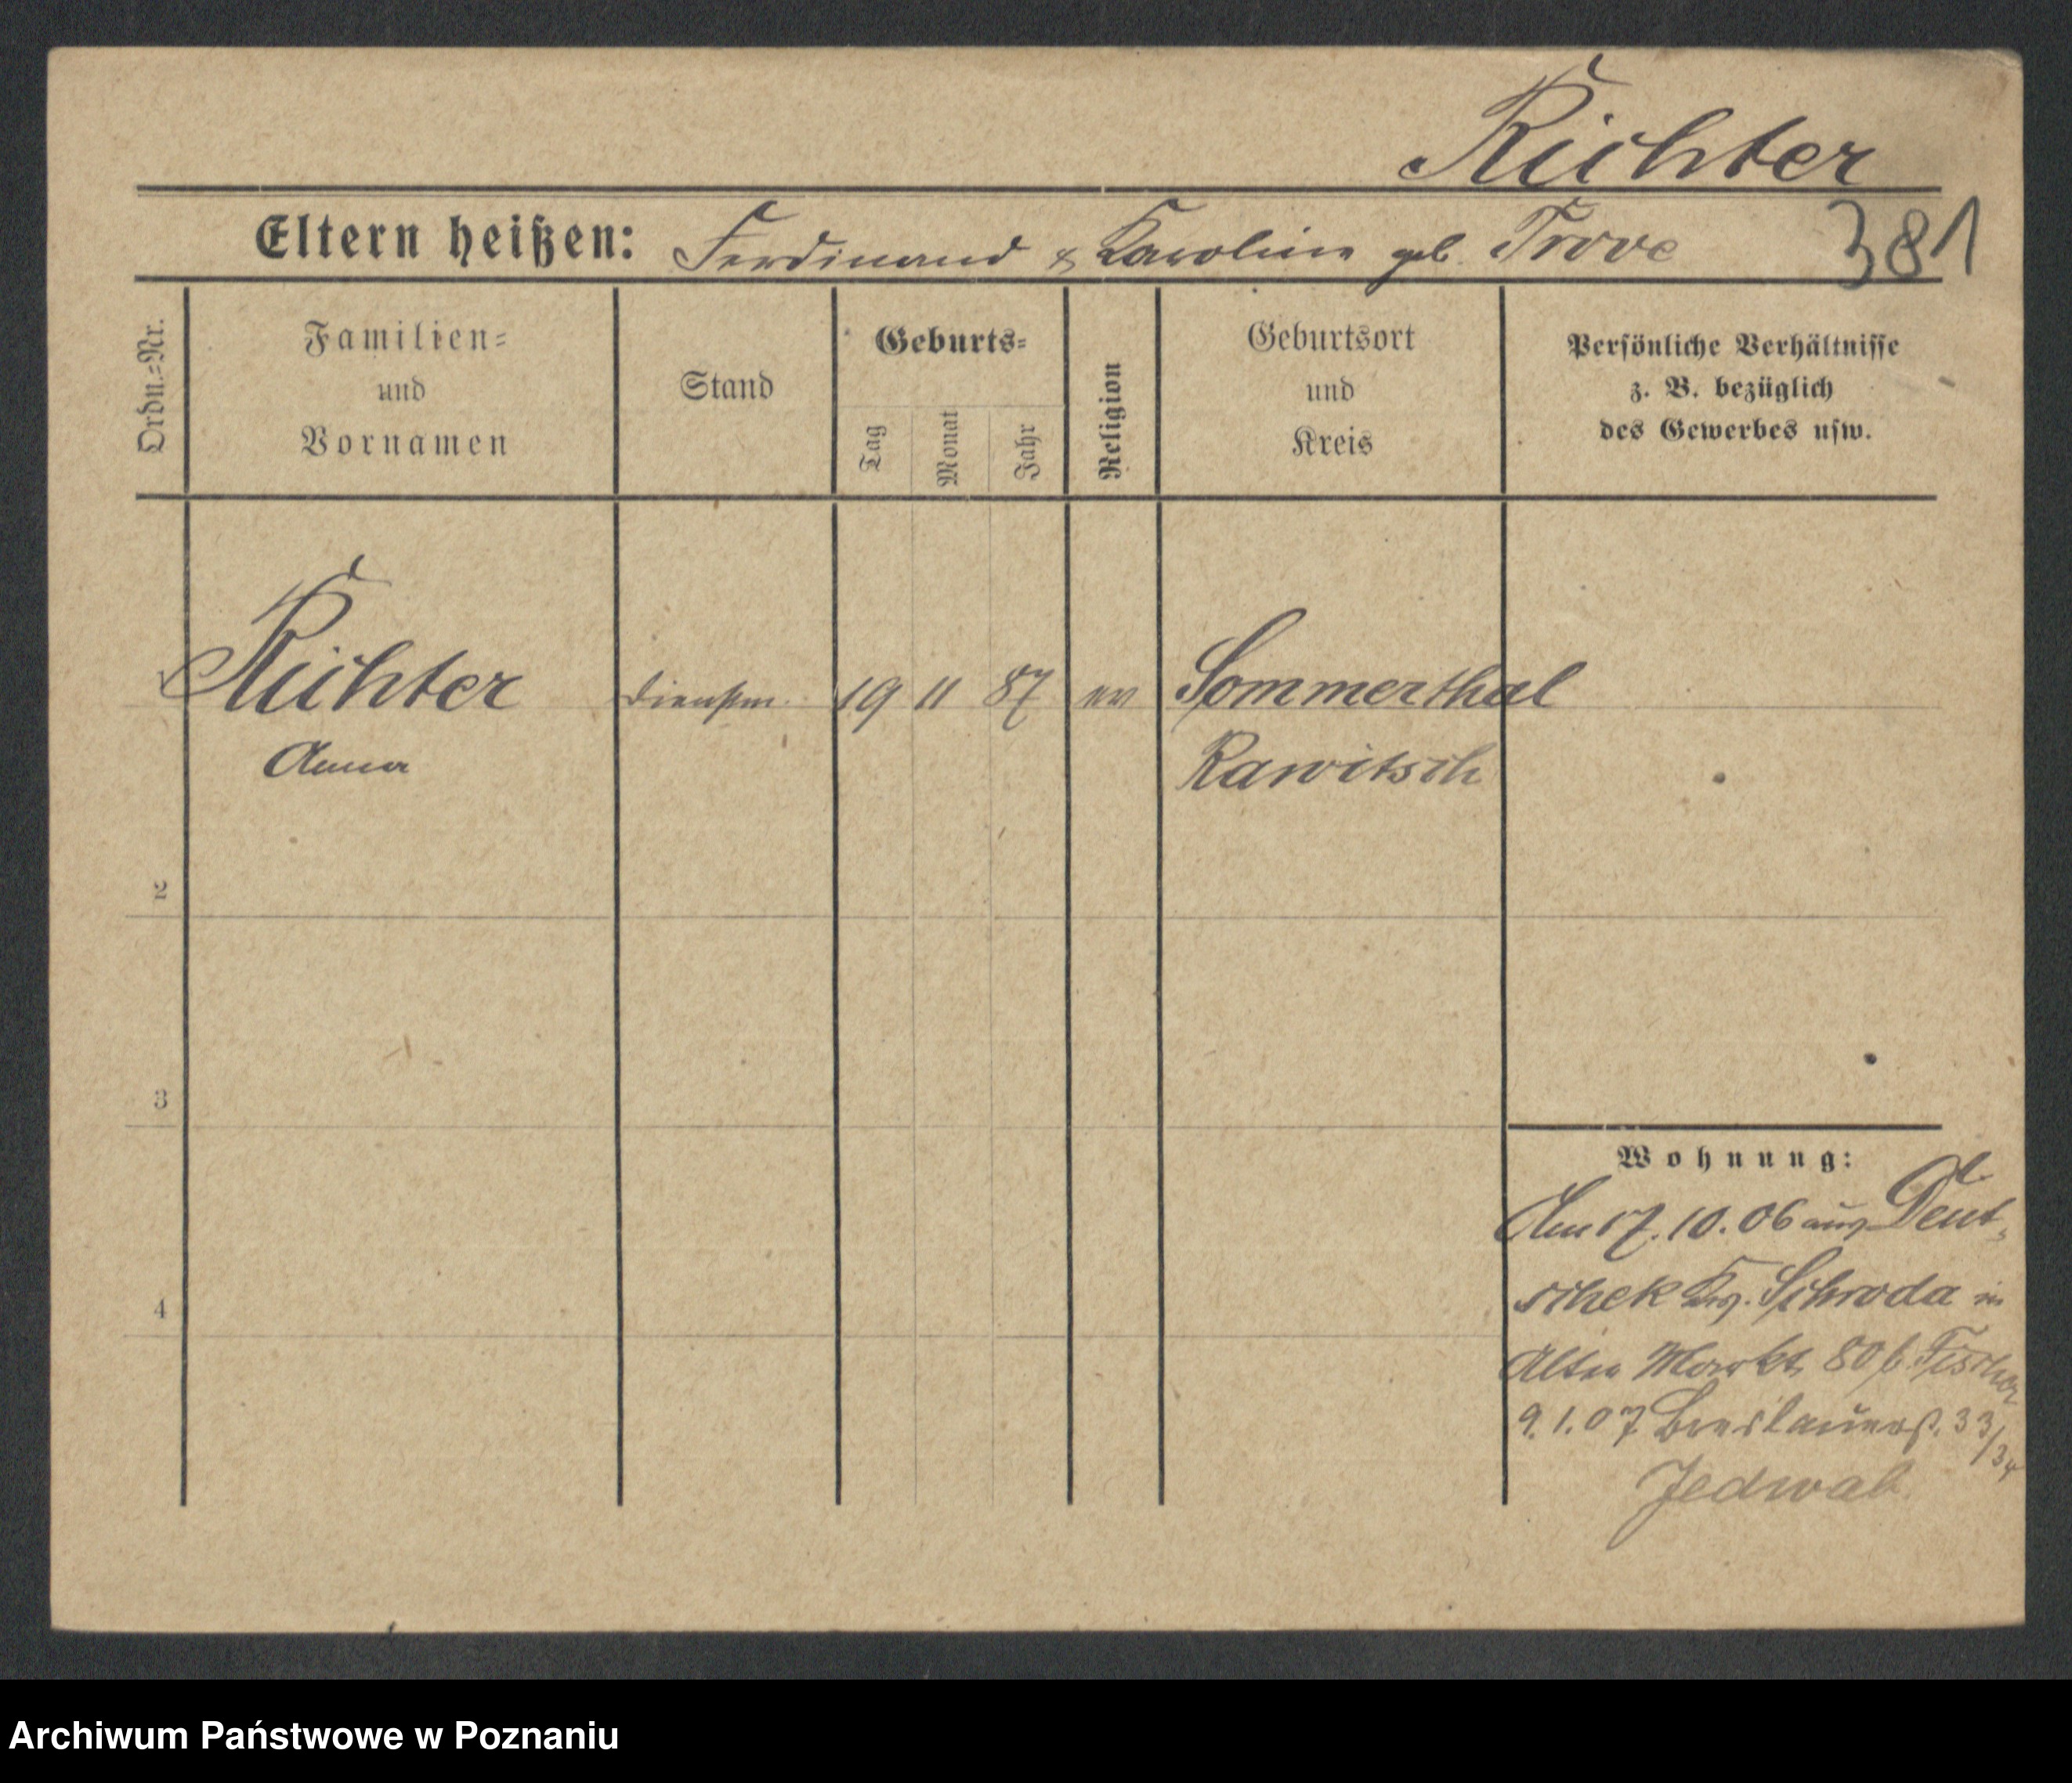 Richter
Eltern heißen: Ferdinand & Karoline geb. Trove 381
Ordn.=Nr.
Familien=
und
Vornamen
Stand
Geburts=
Tag
Monat
Jahr
Religion
Geburtsort
und
Kreis
Persönliche Verhältnisse
z. B. bezüglich
des Gewerbes usw.
Richter Dienstm. 19 11 87 ev Sommerthal
Anna Rawitsch
2
3
4
Wohnung:
Am 17. 10. 06 aus Deut-
schek Krs. Schroda in
Alter Markt 80 b. Fischer
9. 1. 07 Breslauerst. 33/34
Jedwab
Archiwum Państwowe w Poznaniu